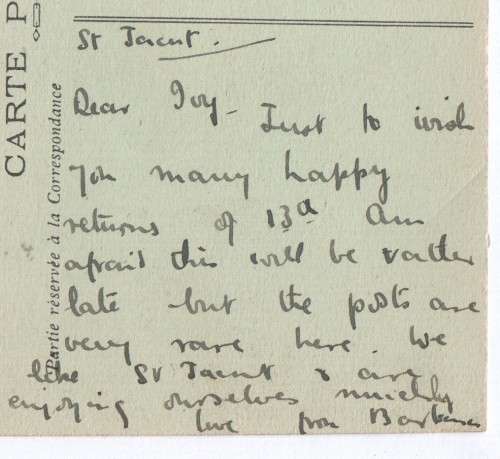 CARTE P
Partie réservée à la Correspondance
St Jacut.
Dear Ivy - Just to wish
you many happy
returns of 13th Am
afraid this will be rather
late but the posts are
very rare here. We
like St Jacut & are
enjoying ourselves muchly
love from Barbara